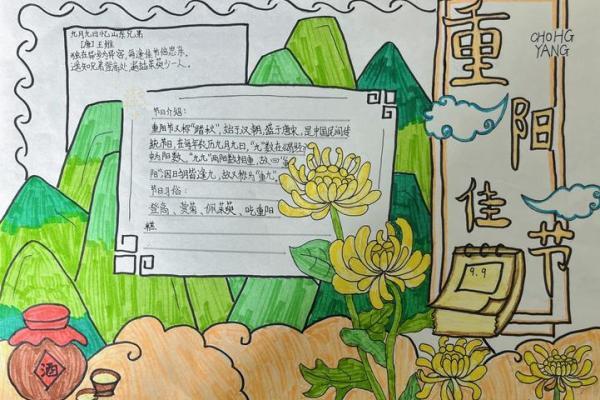 九月九日忆山东兄弟
[唐] 王维
独在异乡为异客,每逢佳节倍思亲。
遥知兄弟登高处,遍插茱萸少一人。
节日介绍:
重阳节又称"踏秋",始于汉朝,盛于唐宋,是中国民间传
统节日,在每年农历九月九日,"九"数在《易经》
中为阳数,"九九"两阳数相重,故曰"
阳";因日月皆逢九,故又称为"重九"。
节日习俗:
登高、赏菊、佩茱萸、吃重阳
糕
重阳佳节
CHONG
YANG
9.9
酒